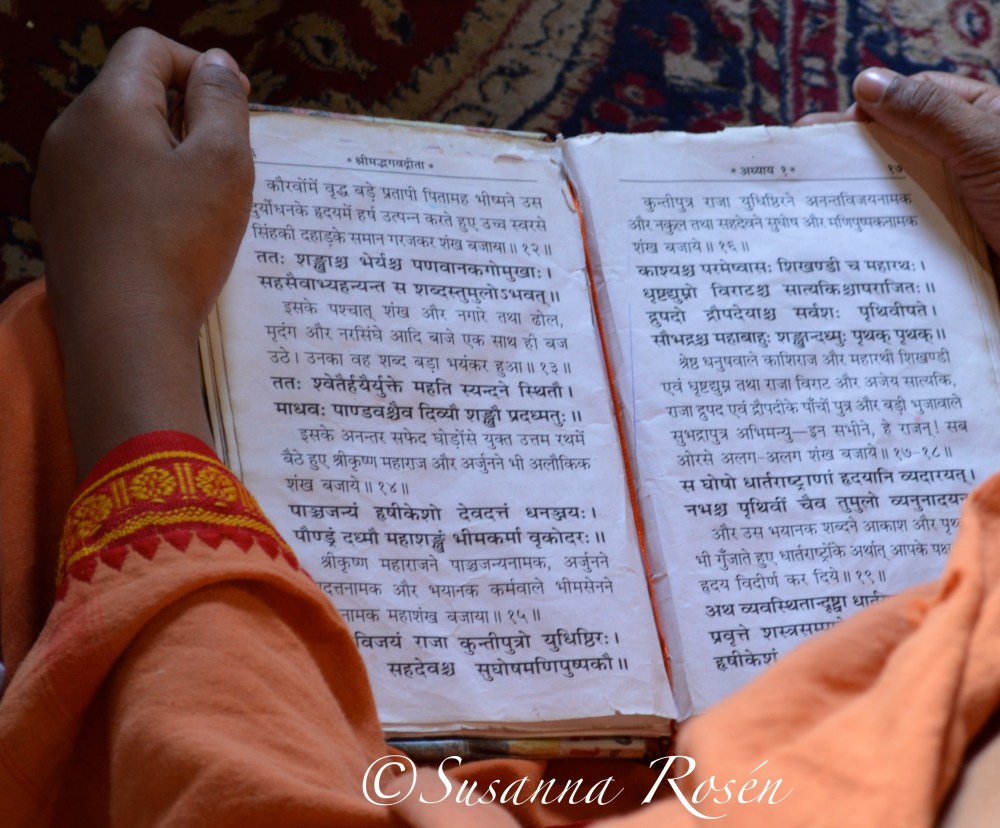 * श्रीमद्भगवद्गीता *
कौरवोंमें वृद्ध बड़े प्रतापी पितामह भीष्मने उस
दुर्योधनके हृदयमें हर्ष उत्पन्न करते हुए उच्च स्वरसे
सिंहकी दहाड़के समान गरजकर शंख बजाया॥ १२॥
ततः शङ्खाश्च भेर्यश्च पणवानकगोमुखाः।
सहसैवाभ्यहन्यन्त स शब्दस्तुमुलोऽभवत्॥
इसके पश्चात् शंख और नगारे तथा ढोल,
मृदंग और नरसिंघे आदि बाजे एक साथ ही बज
उठे। उनका वह शब्द बड़ा भयंकर हुआ॥ १३॥
ततः श्वेतैर्हयैर्युक्ते महति स्यन्दने स्थितौ।
माधवः पाण्डवश्चैव दिव्यौ शङ्खौ प्रदध्मतुः॥
इसके अनन्तर सफेद घोड़ोंसे युक्त उत्तम रथमें
बैठे हुए श्रीकृष्ण महाराज और अर्जुनने भी अलौकिक
शंख बजाये॥ १४॥
पाञ्चजन्यं हृषीकेशो देवदत्तं धनञ्जयः।
पौण्ड्रं दध्मौ महाशङ्खं भीमकर्मा वृकोदरः॥
श्रीकृष्ण महाराजने पाञ्चजन्यनामक, अर्जुनने
दत्तनामक और भयानक कर्मवाले भीमसेनने
नामक महाशंख बजाया॥ १५॥
विजयं राजा कुन्तीपुत्रो युधिष्ठिरः।
सहदेवश्च सुघोषमणिपुष्पकौ॥
* अध्याय १ *
१७
कुन्तीपुत्र राजा युधिष्ठिरने अनन्तविजयनामक
और नकुल तथा सहदेवने सुघोष और मणिपुष्पकनामक
शंख बजाये॥ १६॥
काश्यश्च परमेष्वासः शिखण्डी च महारथः।
धृष्टद्युम्नो विराटश्च सात्यकिश्चापराजितः॥
द्रुपदो द्रौपदेयाश्च सर्वशः पृथिवीपते।
सौभद्रश्च महाबाहुः शङ्खान्दध्मुः पृथक् पृथक्॥
श्रेष्ठ धनुषवाले काशिराज और महारथी शिखण्डी
एवं धृष्टद्युम्न तथा राजा विराट और अजेय सात्यकि,
राजा द्रुपद एवं द्रौपदीके पाँचों पुत्र और बड़ी भुजावाले
सुभद्रापुत्र अभिमन्यु—इन सभीने, हे राजन्! सब
ओरसे अलग-अलग शंख बजाये॥ १७-१८॥
स घोषो धार्तराष्ट्राणां हृदयानि व्यदारयत्।
नभश्च पृथिवीं चैव तुमुलो व्यनुनादयन्
और उस भयानक शब्दने आकाश और पृथ
भी गुँजाते हुए धार्तराष्ट्रोंके अर्थात् आपके पक्ष
हृदय विदीर्ण कर दिये॥ १९॥
अथ व्यवस्थितान्दृष्ट्वा
प्रवृत्ते
हृषीकेशं
©Susanna Rosén